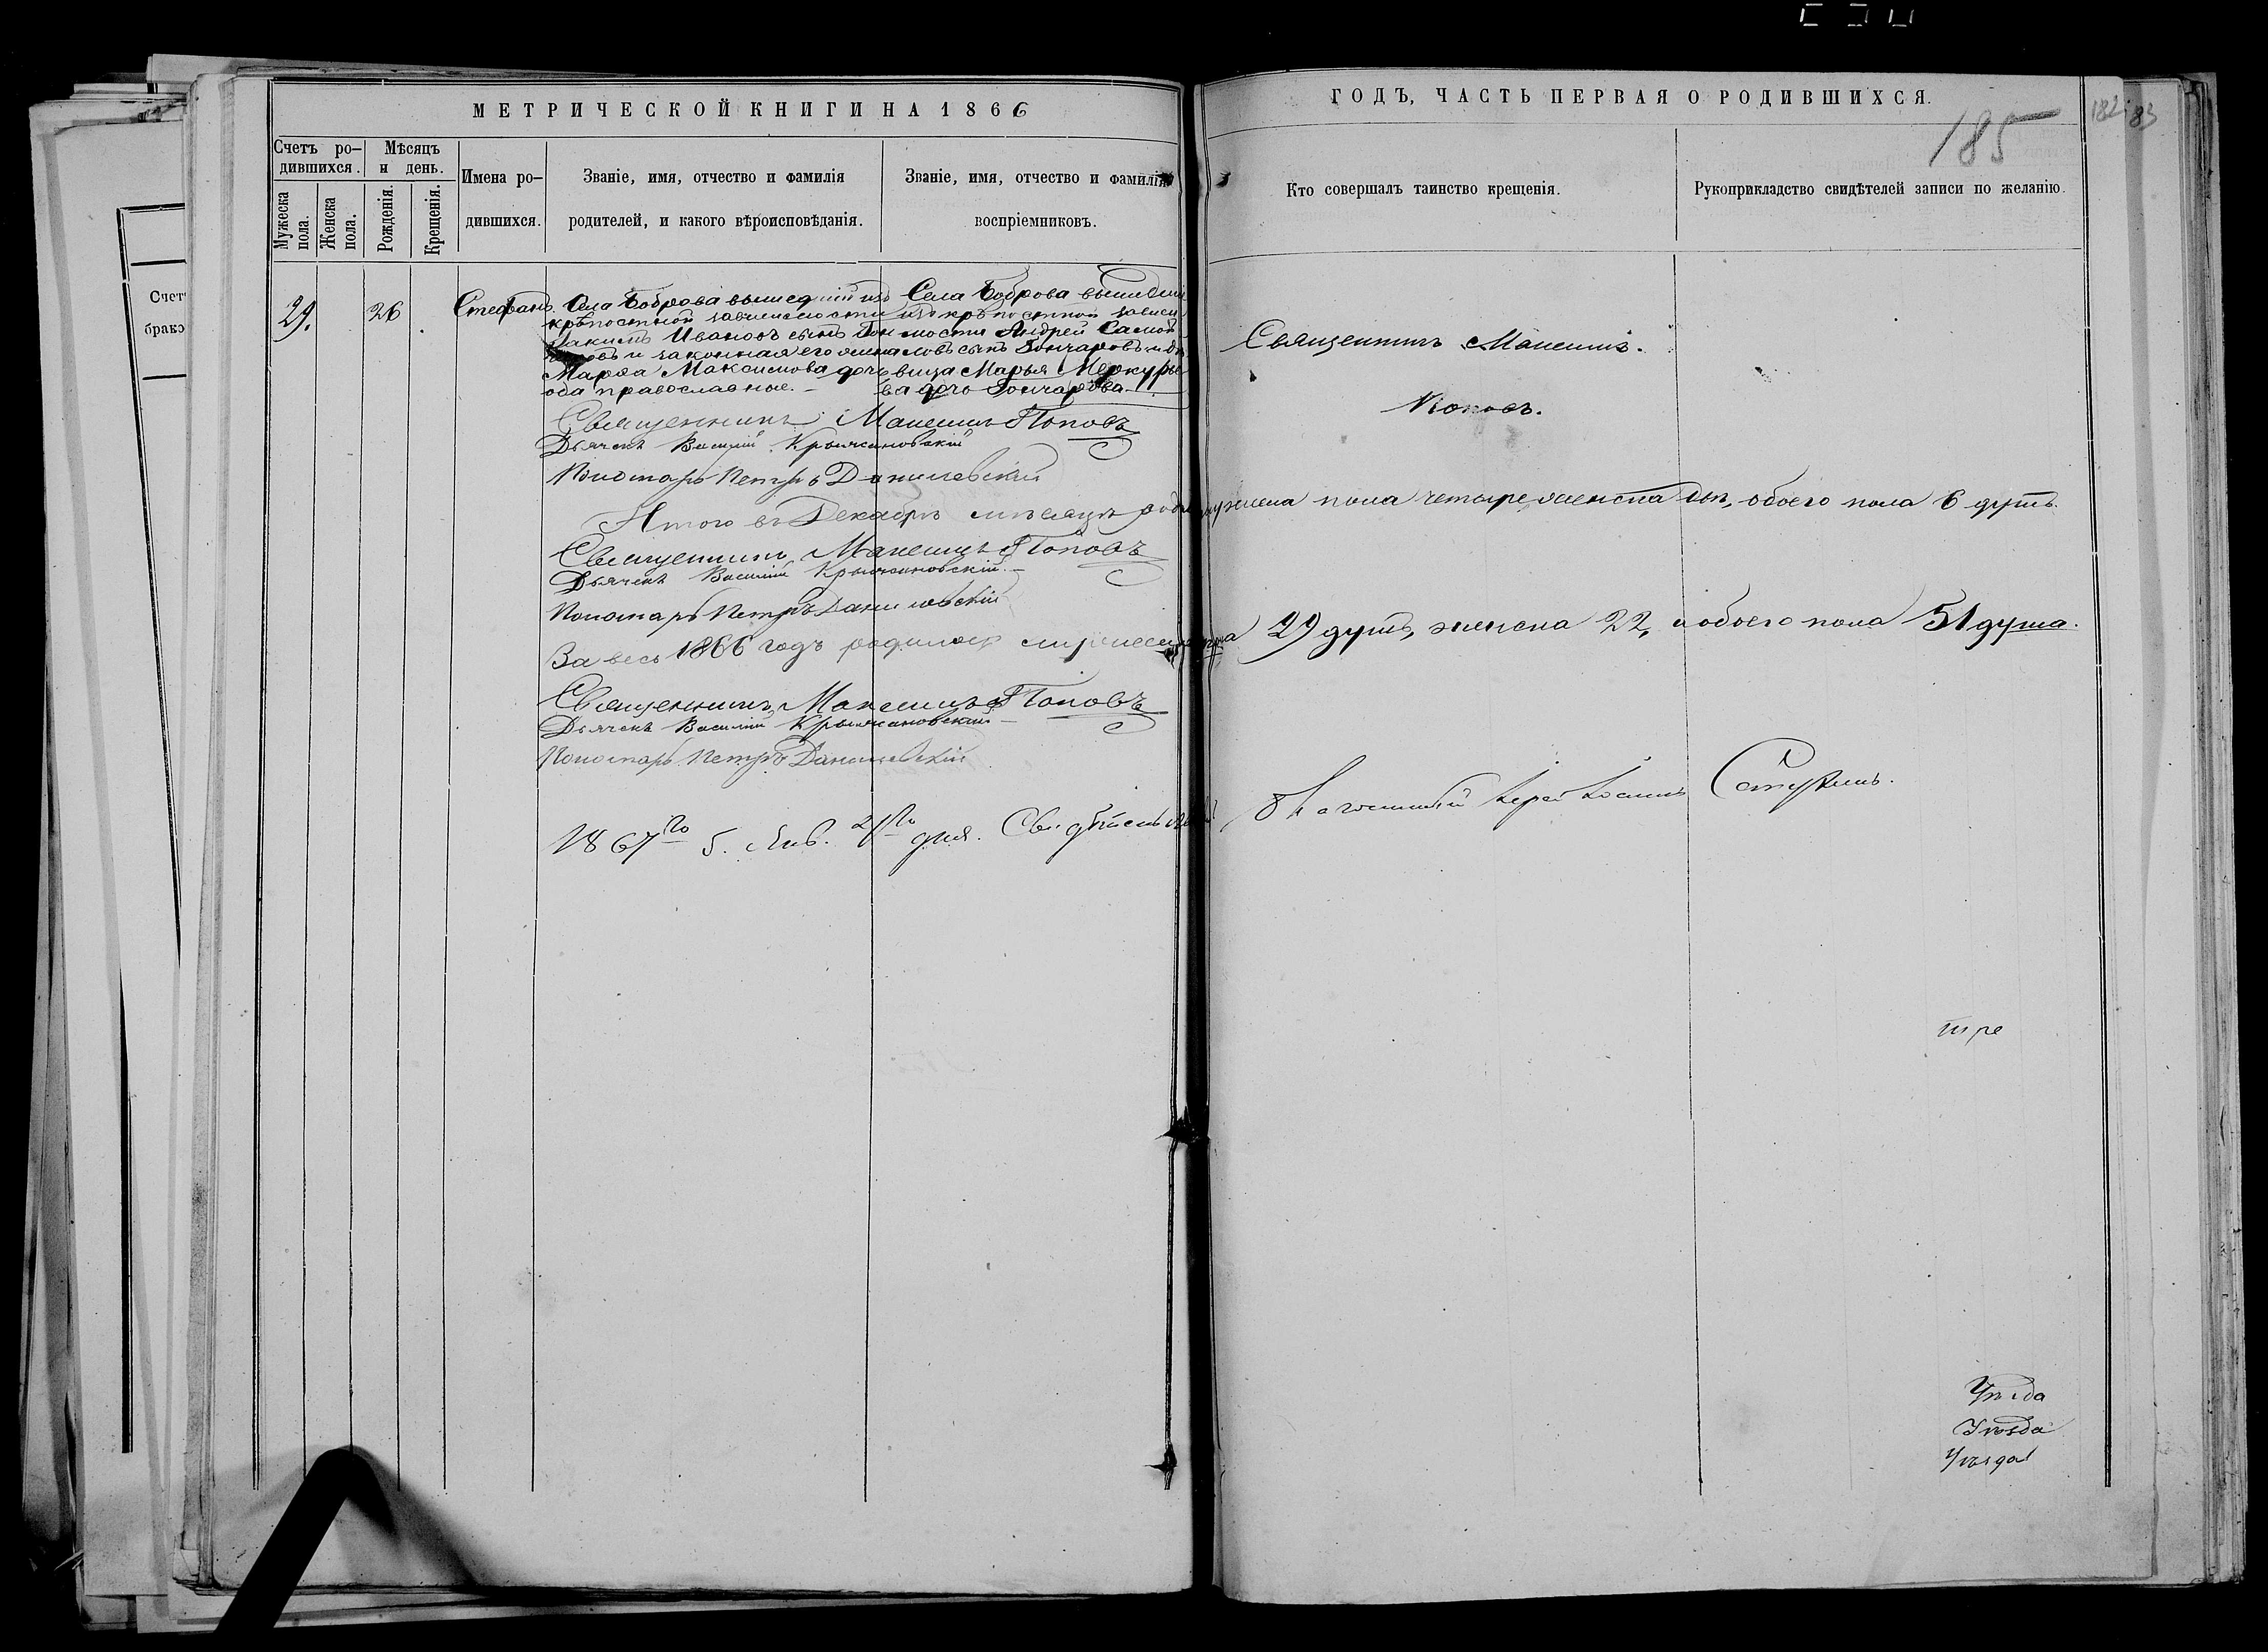 МЕТРИЧЕСКОЙ КНИГИ НА 1866
ГОДЪ, ЧАСТЬ ПЕРВАЯ О РОДИВШИХСЯ.
185
182
83
Счетъ ро-
дившихся.
Мѣсяцъ
и день.
Мужеска
пола.
Женска
пола.
Рожденія.
Крещенія.
Имена ро-
дившихся.
Званіе, имя, отчество и фамилія
родителей, и какого вѣроисповѣданія.
Званіе, имя, отчество и фамилія
воспріемниковъ.
Кто совершалъ таинство крещенія.
Рукоприкладство свидѣтелей записи по желанію.
Счет
брако
29.
26
Стефанъ.
Села Боброва вышедшій изъ
крѣпостной зависимости
Іакимъ Ивановъ сынъ Гон
и законная его жена
Марѳа Максимова дочь
оба православные.
Села Боброва вышедшій
изъ крѣпостной зависи
мости Андрей Самой
ловъ сынъ Гончаровъ и дѣ
вица Марья Меркурье
ва дочь Гончарова.
Священникъ Максимъ
Поповъ.
Священникъ Максимъ Поповъ
Дьячекъ Василій Крыжановскій
Пономарь Петръ Данилевскій
Итого въ Декабрѣ мѣсяцѣ мужеска пола четыре женска два, обоего пола 6 душъ.
Священникъ Максимъ Поповъ
Дьячекъ Василій Крыжановскій
Пономарь Петръ Данилевскій
За весь 1866 годъ родилось мужеска пола 29 душъ, женска 22, и обоего пола 51 душа.
Священникъ Максимъ Поповъ
Дьячекъ Василій Крыжановскій
Пономарь Петръ Данилевскій
1867го г. Янв. 21го дня. Свидѣтельств. Благочинный Іерей
тре
Уѣзда
Уѣзда
Уѣзда